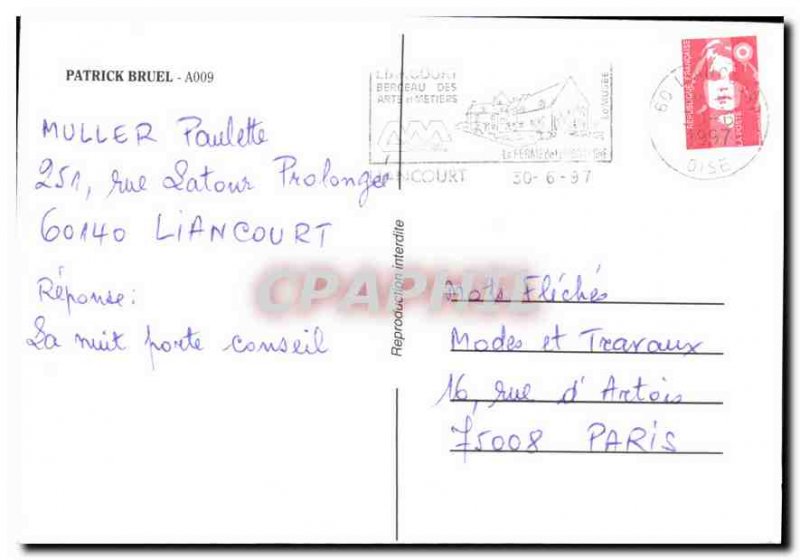 PATRICK BRUEL - A009
MULLER Paulette
251, rue Latour Prolongée
60140 LIANCOURT
Réponse:
La nuit porte conseil
LIANCOURT
BERCEAU DES
ARTS et METIERS
Le MUSÉE
La FERME de
LIANCOURT 30-6-97
RÉPUBLIQUE FRANÇAISE
LA POSTE
60
1997
OISE
Reproduction interdite
CPAPHIL
Mots Fléchés
Modes et Travaux
16, rue d'Artois
75008 PARIS